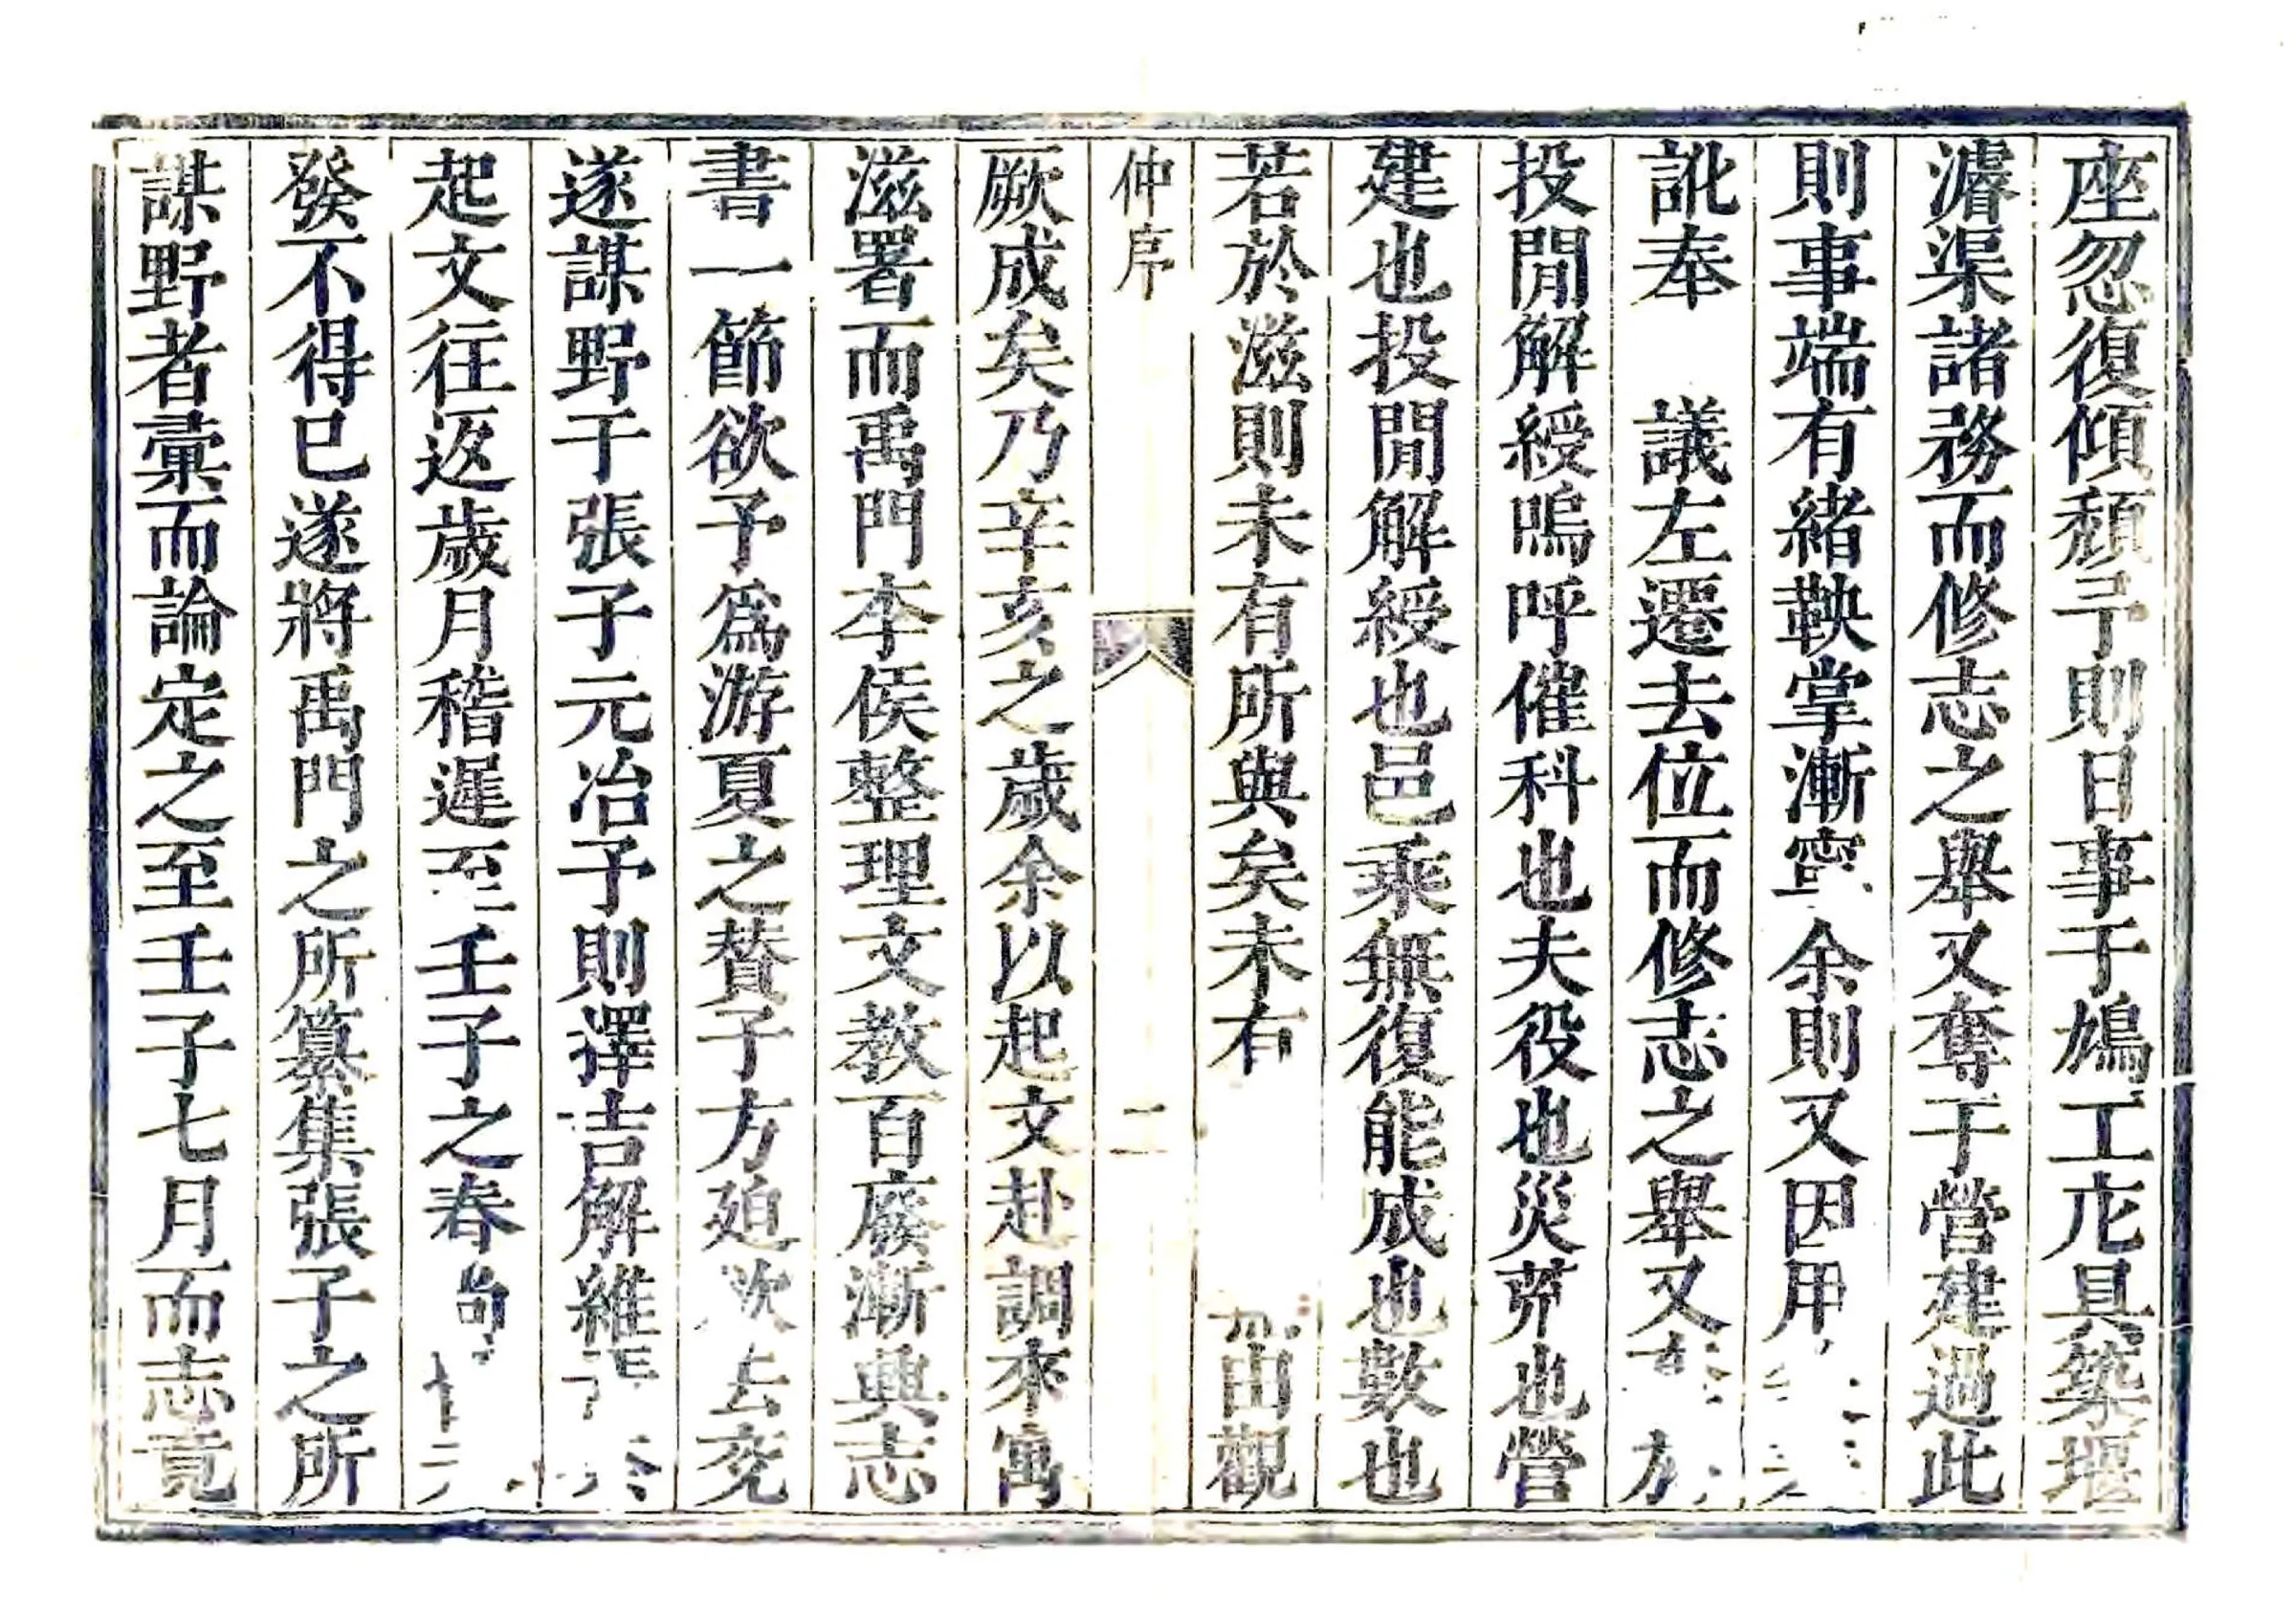 座忽復傾頽予則日事于鳩工庀具築堰
濬渠諸務而修志之舉又奪于營建過此
則事端有緒鞅掌漸寧余則又因用
訛奉　議左遷去位而修志之舉又
投閒解綬嗚呼催科也夫役也災荒也營
建也投閒解綬也邑乘無復能成也數也
若於滋則未有所與矣未有　由觀
仲序
二
厥成矣乃辛亥之歲余以起文赴調來寓
滋署而禹門李侯整理文教百廢漸興志
書一節欲予爲游夏之賛予方廹欲去兗
遂謀野于張子元冶予則擇吉解維
起文往返歲月稽遲至壬子之春尚
發不得已遂將禹門之所纂集張子之所
謀野者彙而論定之至壬子七月而志竟